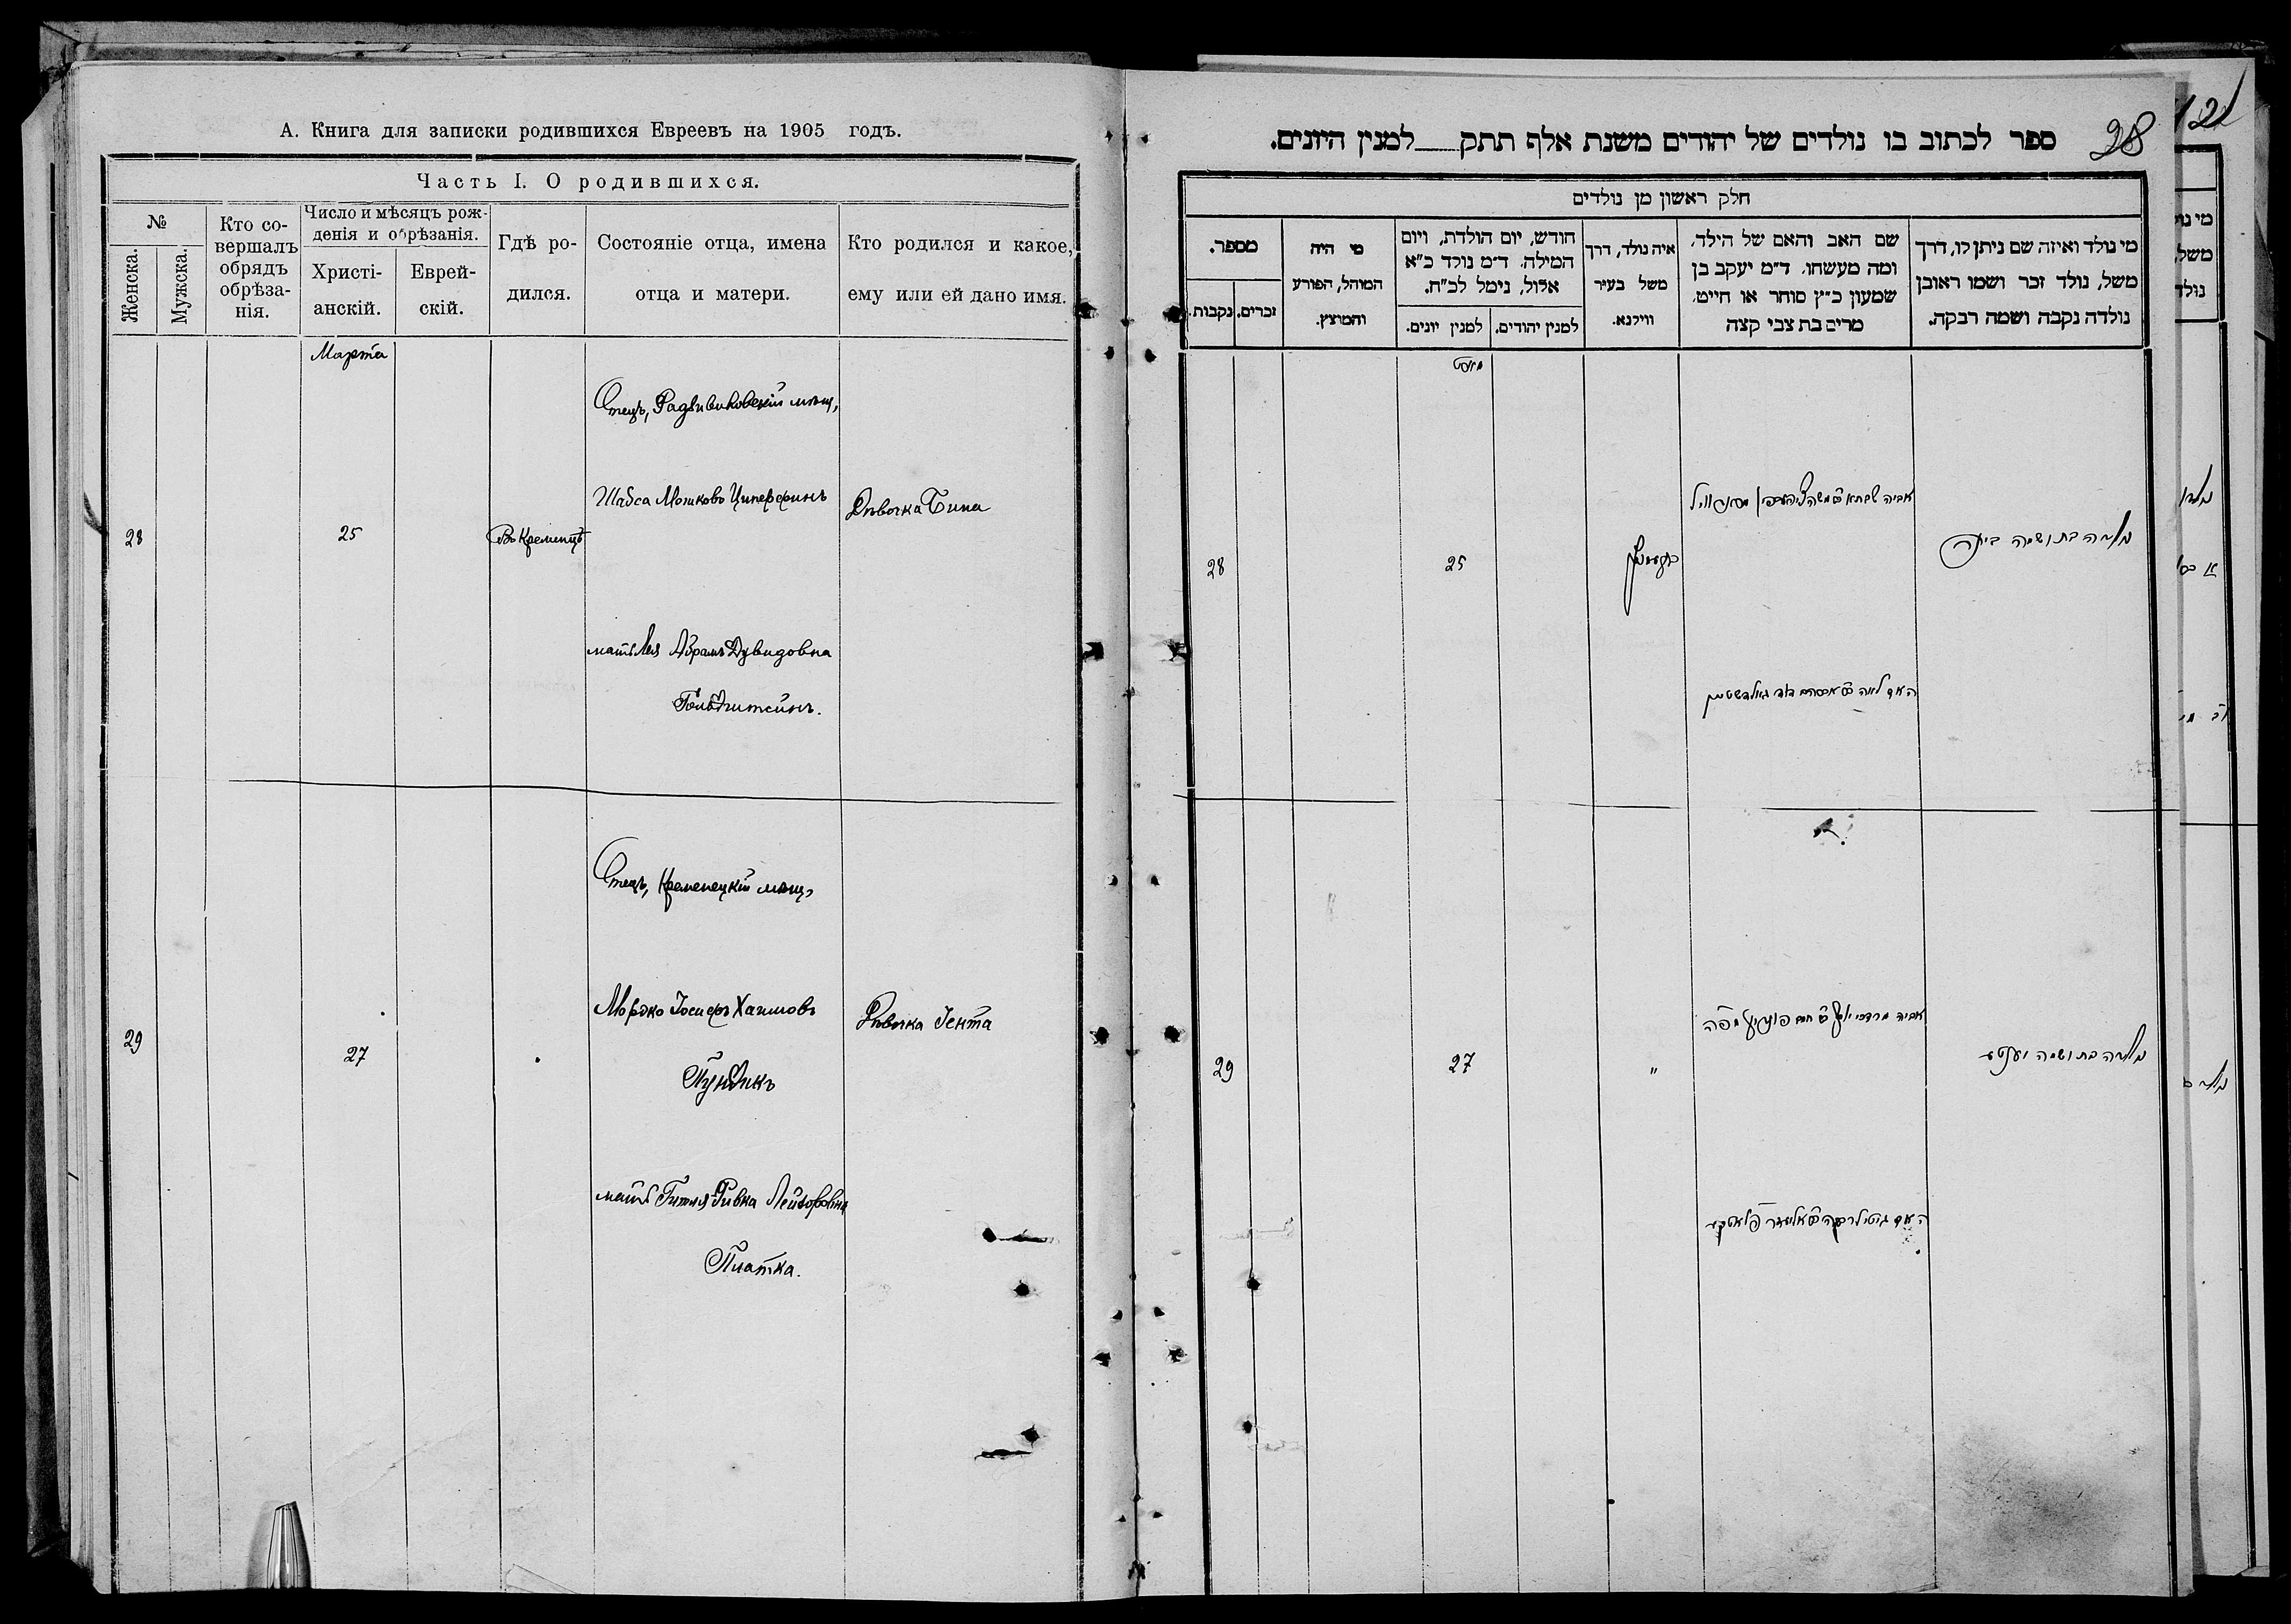 А. Книга для записки родившихся Евреевъ на 1905 годъ.
Часть I. О родившихся.
№
Женска.
Мужска.
Кто со-
вершалъ
обрядъ
обрѣза-
нія.
Число и мѣсяцъ рож-
денія и обрѣзанія.
Христі-
анскій.
Еврей-
скій.
Гдѣ ро-
дился.
Состояніе отца, имена
отца и матери.
Кто родился и какое,
ему или ей дано имя.
Марта
28
25
Въ Кременцѣ
Отецъ, Радзивиловскій мѣщ,
Шабса Мошковъ Циперфинъ
мать Лея Абрамъ Дувидовна
Гольдштейнъ.
Дѣвочка Бина
29
27
Отецъ, Кременецкій мѣщ,
Мордко Іосифъ Хаимовъ
Пундикъ
мать Гитля Ривка Лейзоровна
Пиатка.
Дѣвочка Іента
28
ספר לכתוב בו נולדים של יהודים משנת אלף תתק למנין היונים.
חלק ראשון מן נולדים
מי נולד ואיזה שם ניתן לו, דרך
משל, נולד זכר ושמו ראובן
נולדה נקבה ושמה רבקה.
שם האב והאם של הילד,
ומה מעשהו. ד״מ יעקב בן
שמעון כ״ץ סוחר או חייט,
מרים בת צבי קצה
איה נולד, דרך
משל בעיר
ווילנא.
חודש, יום הולדת, ויום
המילה. ד״מ נולד כ״א
אלול, נימל לכ״ח.
למנין יהודים.
למנין יונים.
מי היה
המוהל, הפורע
והמוצץ.
מספר.
זכרים.
נקבות.
28
25
נולדה בת ושמה
29
27
"
נולדה בת ושמה יענטע